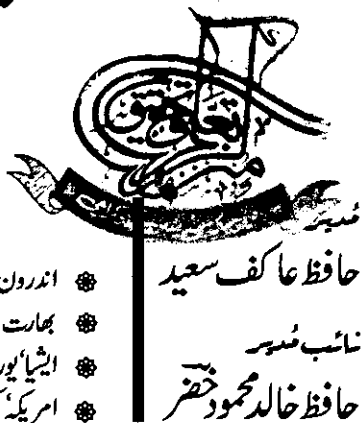 مدیر
حافظ عاکف سعید
نائب مدیر
حافظ خالد محمود خضر
اندرون
بھارت
ایشیا' یور
امریکہ'